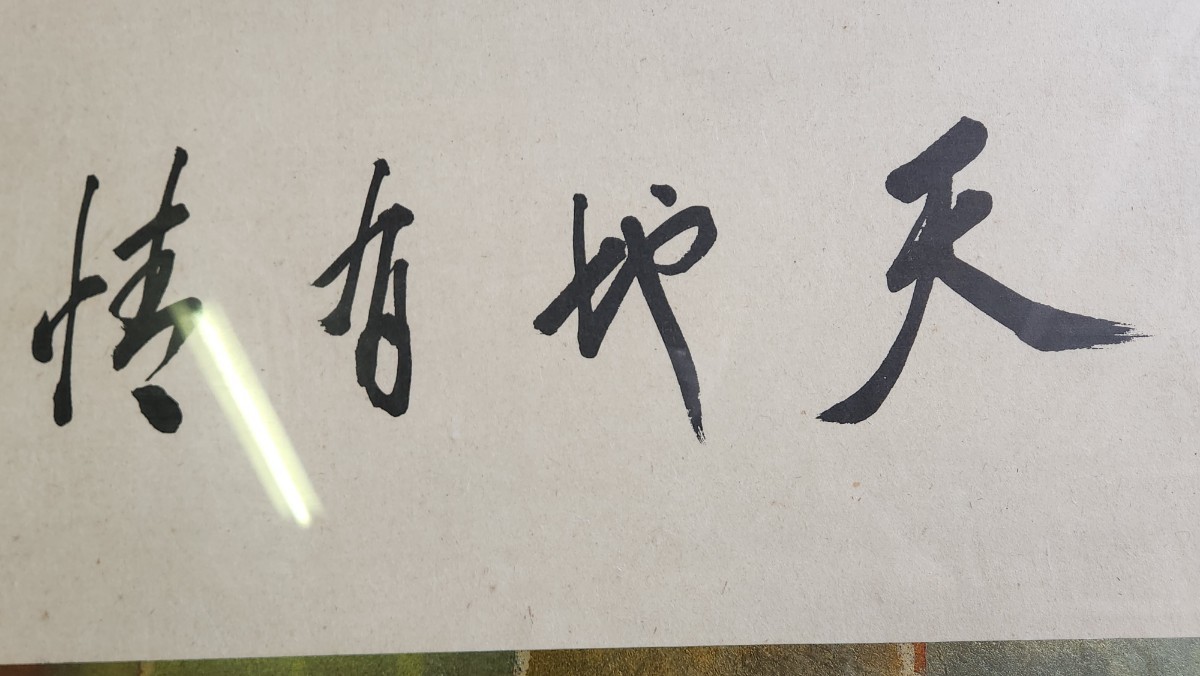 天地有情